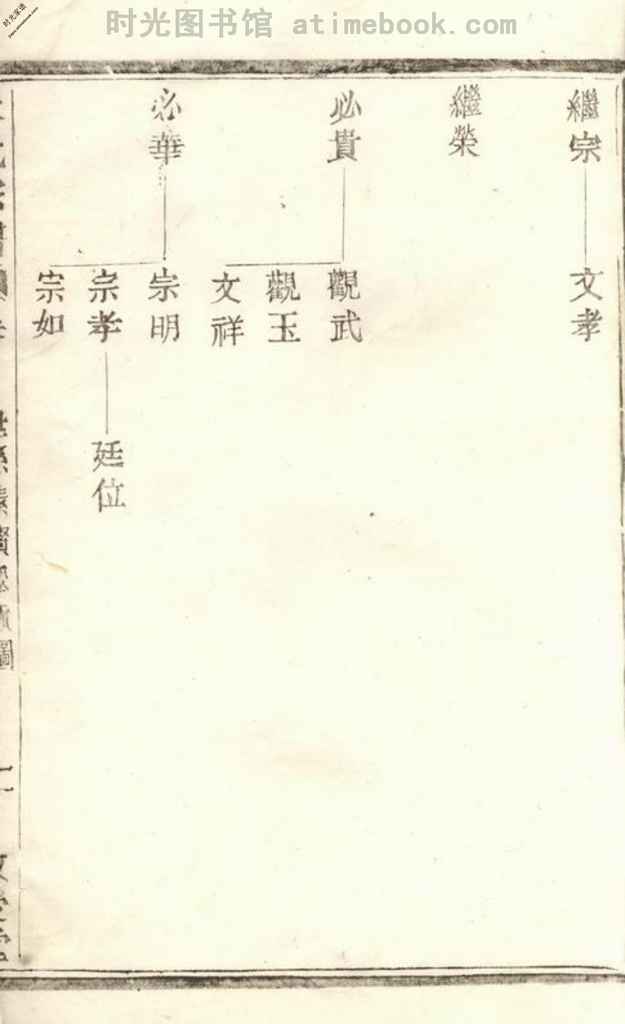 时光图书馆 atimebook.com
繼宗
文孝
繼榮
必貴
觀武
觀玉
文祥
必華
宗明
宗孝
廷位
宗如